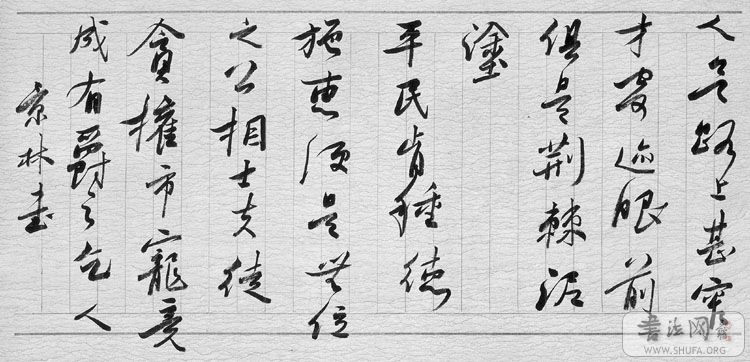 人是路上甚窄
才寄迹眼前
俱是荆棘泥
塗
平民肯種德
施惠便是無位
之公相士夫徒
貪權市寵竟
成有爵之乞人
林書
書法网
WWW.SHUFA.ORG